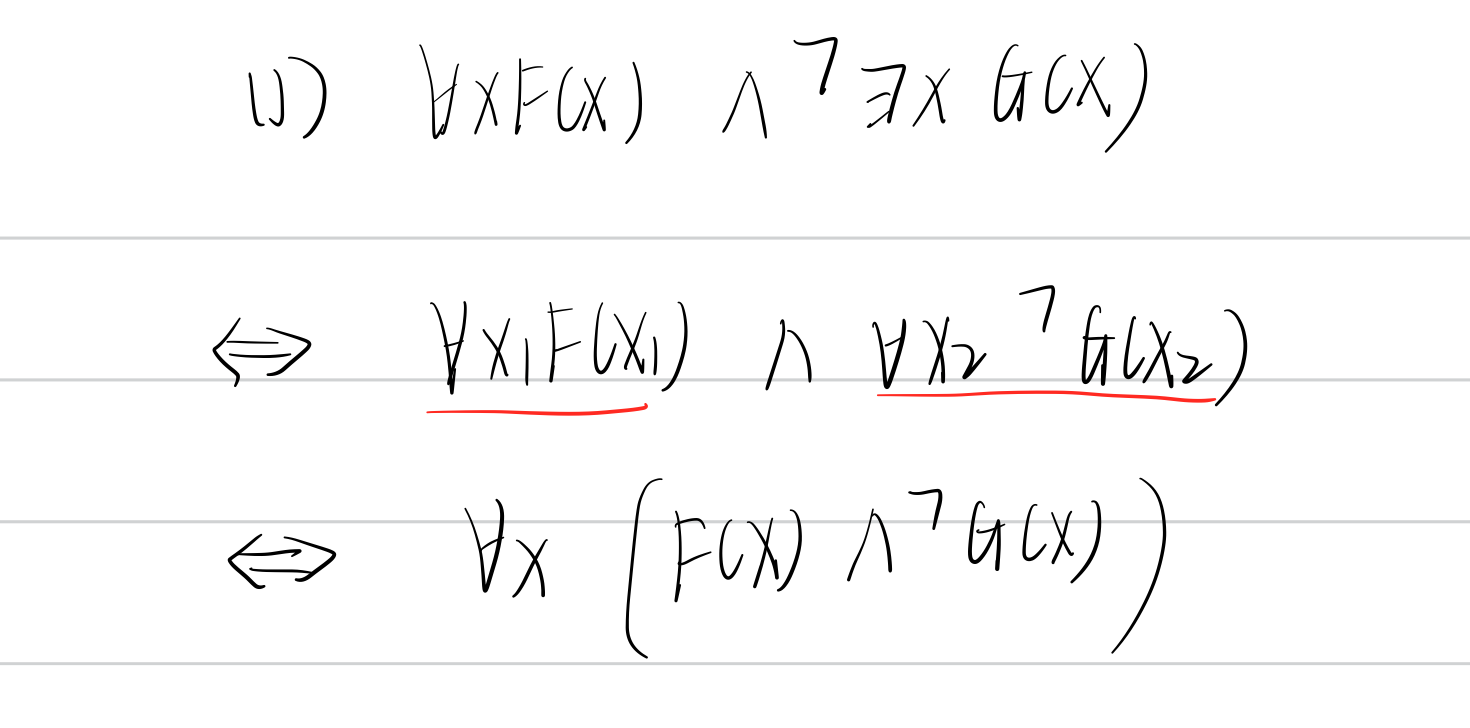 (1) ∀xF(x) ∧ ¬∃x G(x)
⇔ ∀x₁F(x₁) ∧ ∀x₂ ¬G(x₂)
⇔ ∀x (F(x) ∧ ¬G(x))